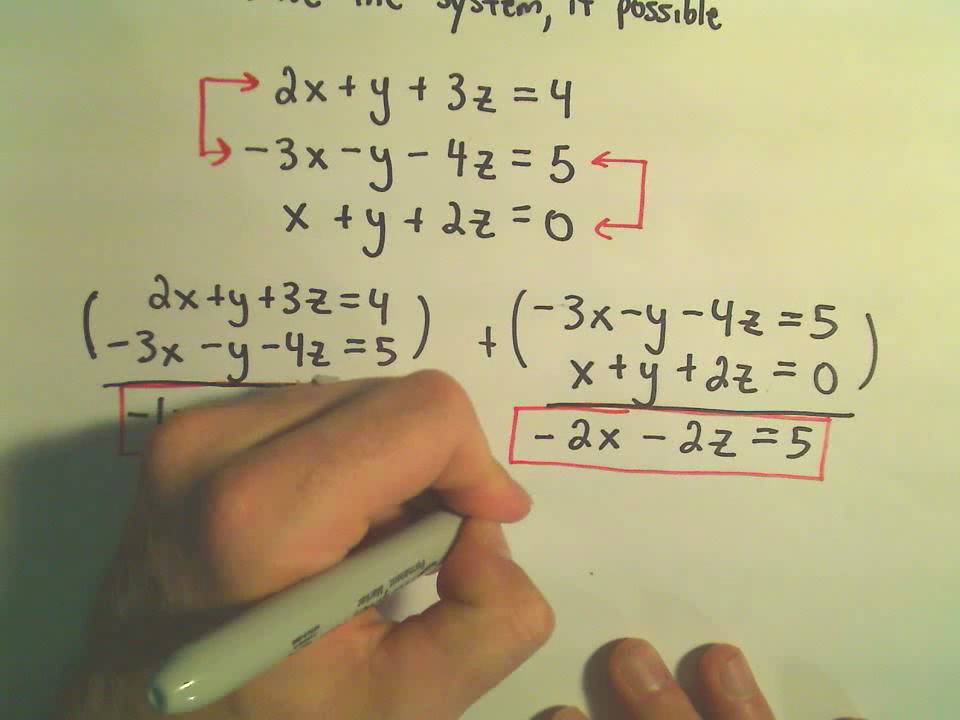 the system, if possible
2x + y + 3z = 4
-3x - y - 4z = 5
x + y + 2z = 0
( 2x + y + 3z = 4
-3x - y - 4z = 5 )
+ ( -3x - y - 4z = 5
x + y + 2z = 0 )
-1
-2x - 2z = 5
Permanent Marker